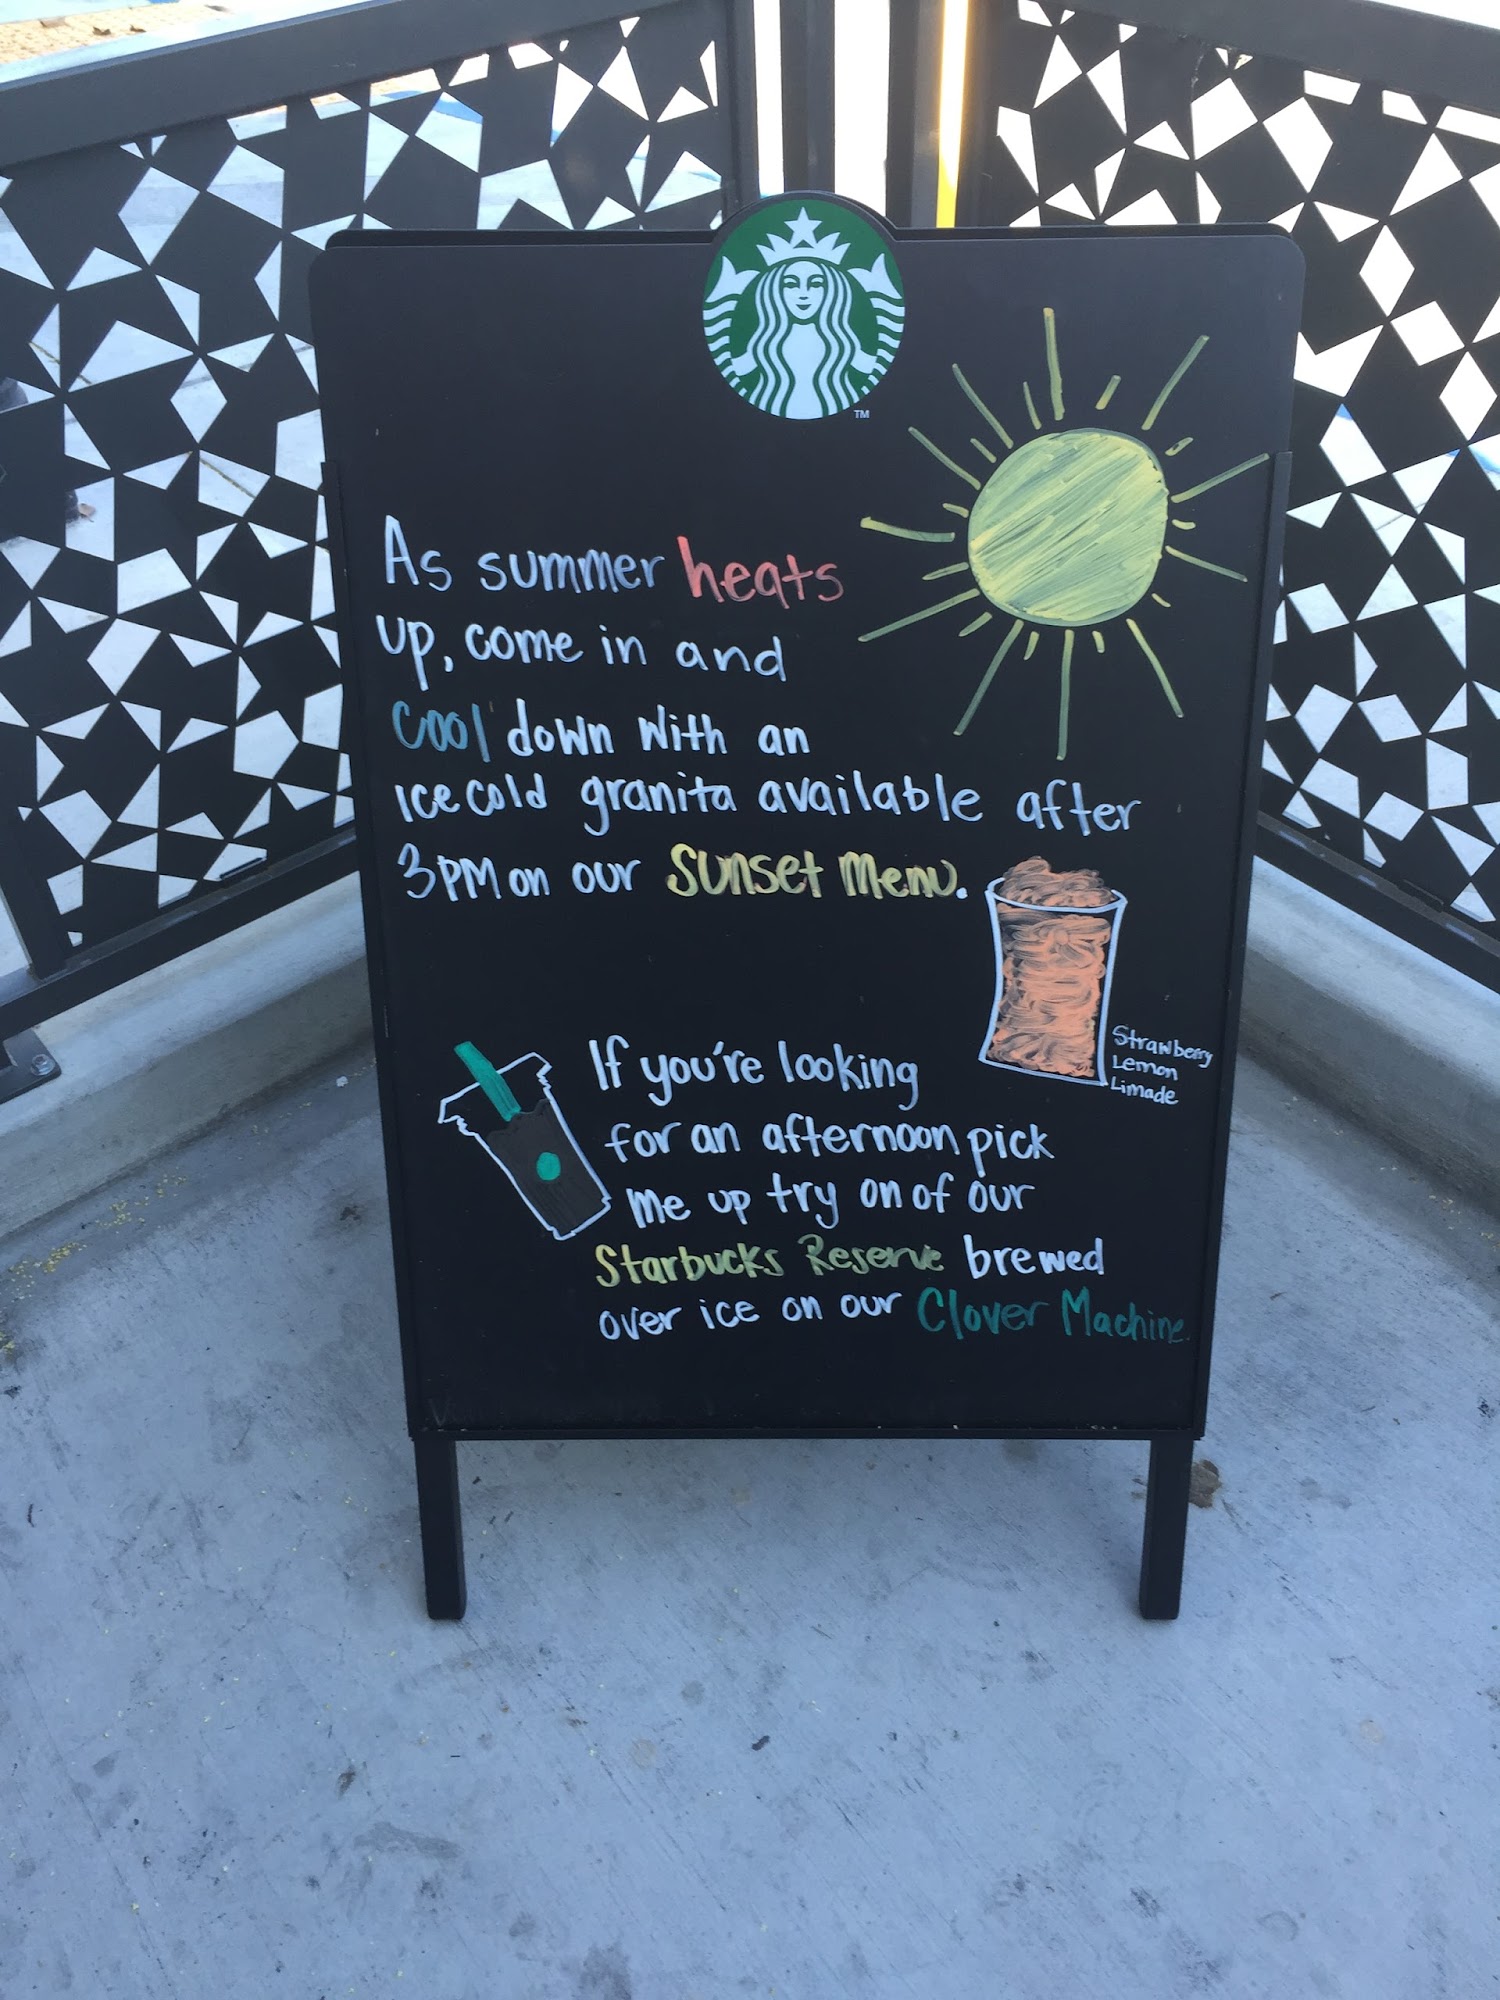 TM
As summer heats
up, come in and
cool down with an
ice cold granita available after
3PM on our Sunset Menu.
Strawberry
Lemon
Limade
If you're looking
for an afternoon pick
me up try on of our
Starbucks Reserve brewed
over ice on our Clover Machine.